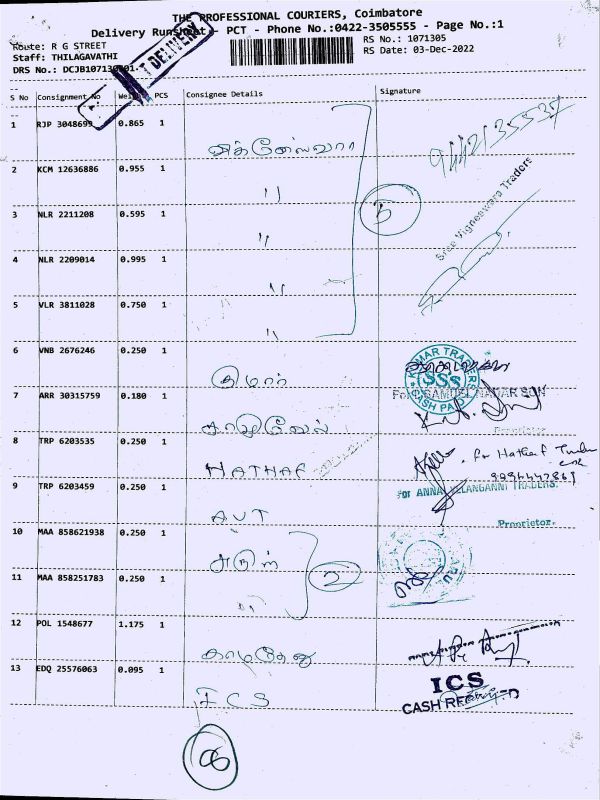 THE PROFESSIONAL COURIERS, Coimbatore
Delivery Runsheet - PCT - Phone No.:0422-3505555 - Page No.:1
Route: R G STREET
RS No.: 1071305
Staff: THILAGAVATHI
RS Date: 03-Dec-2022
DRS No.: DCJB107130
DELIVERY
S No Consignment No Weight PCS Consignee Details Signature
1 RJP 3048699 0.865 1 விக்னேஸ்வரா
2 KCM 12636886 0.955 1 "
3 NLR 2211208 0.595 1 "
5
Sree Vigneewara Traders
4 NLR 2209014 0.995 1 "
5 VLR 3811028 0.750 1 "
6 VNB 2676246 0.250 1 குமார்
KUMAR TRADERS
SSS
CASH PAID
7 ARR 30315759 0.180 1 சாமுவேல்
For SAMUEL NADAR SON
Proprietor
8 TRP 6203535 0.250 1 HATHAF
for Hathaf
9 TRP 6203459 0.250 1 AVT
For ANNAI VELANGANNI TRADERS.
Proprietor.
10 MAA 858621938 0.250 1 அருள்
11 MAA 858251783 0.250 1 "
2
12 POL 1548677 1.175 1 காமதேனு
13 EDQ 25576063 0.095 1 ICS
ICS
CASH